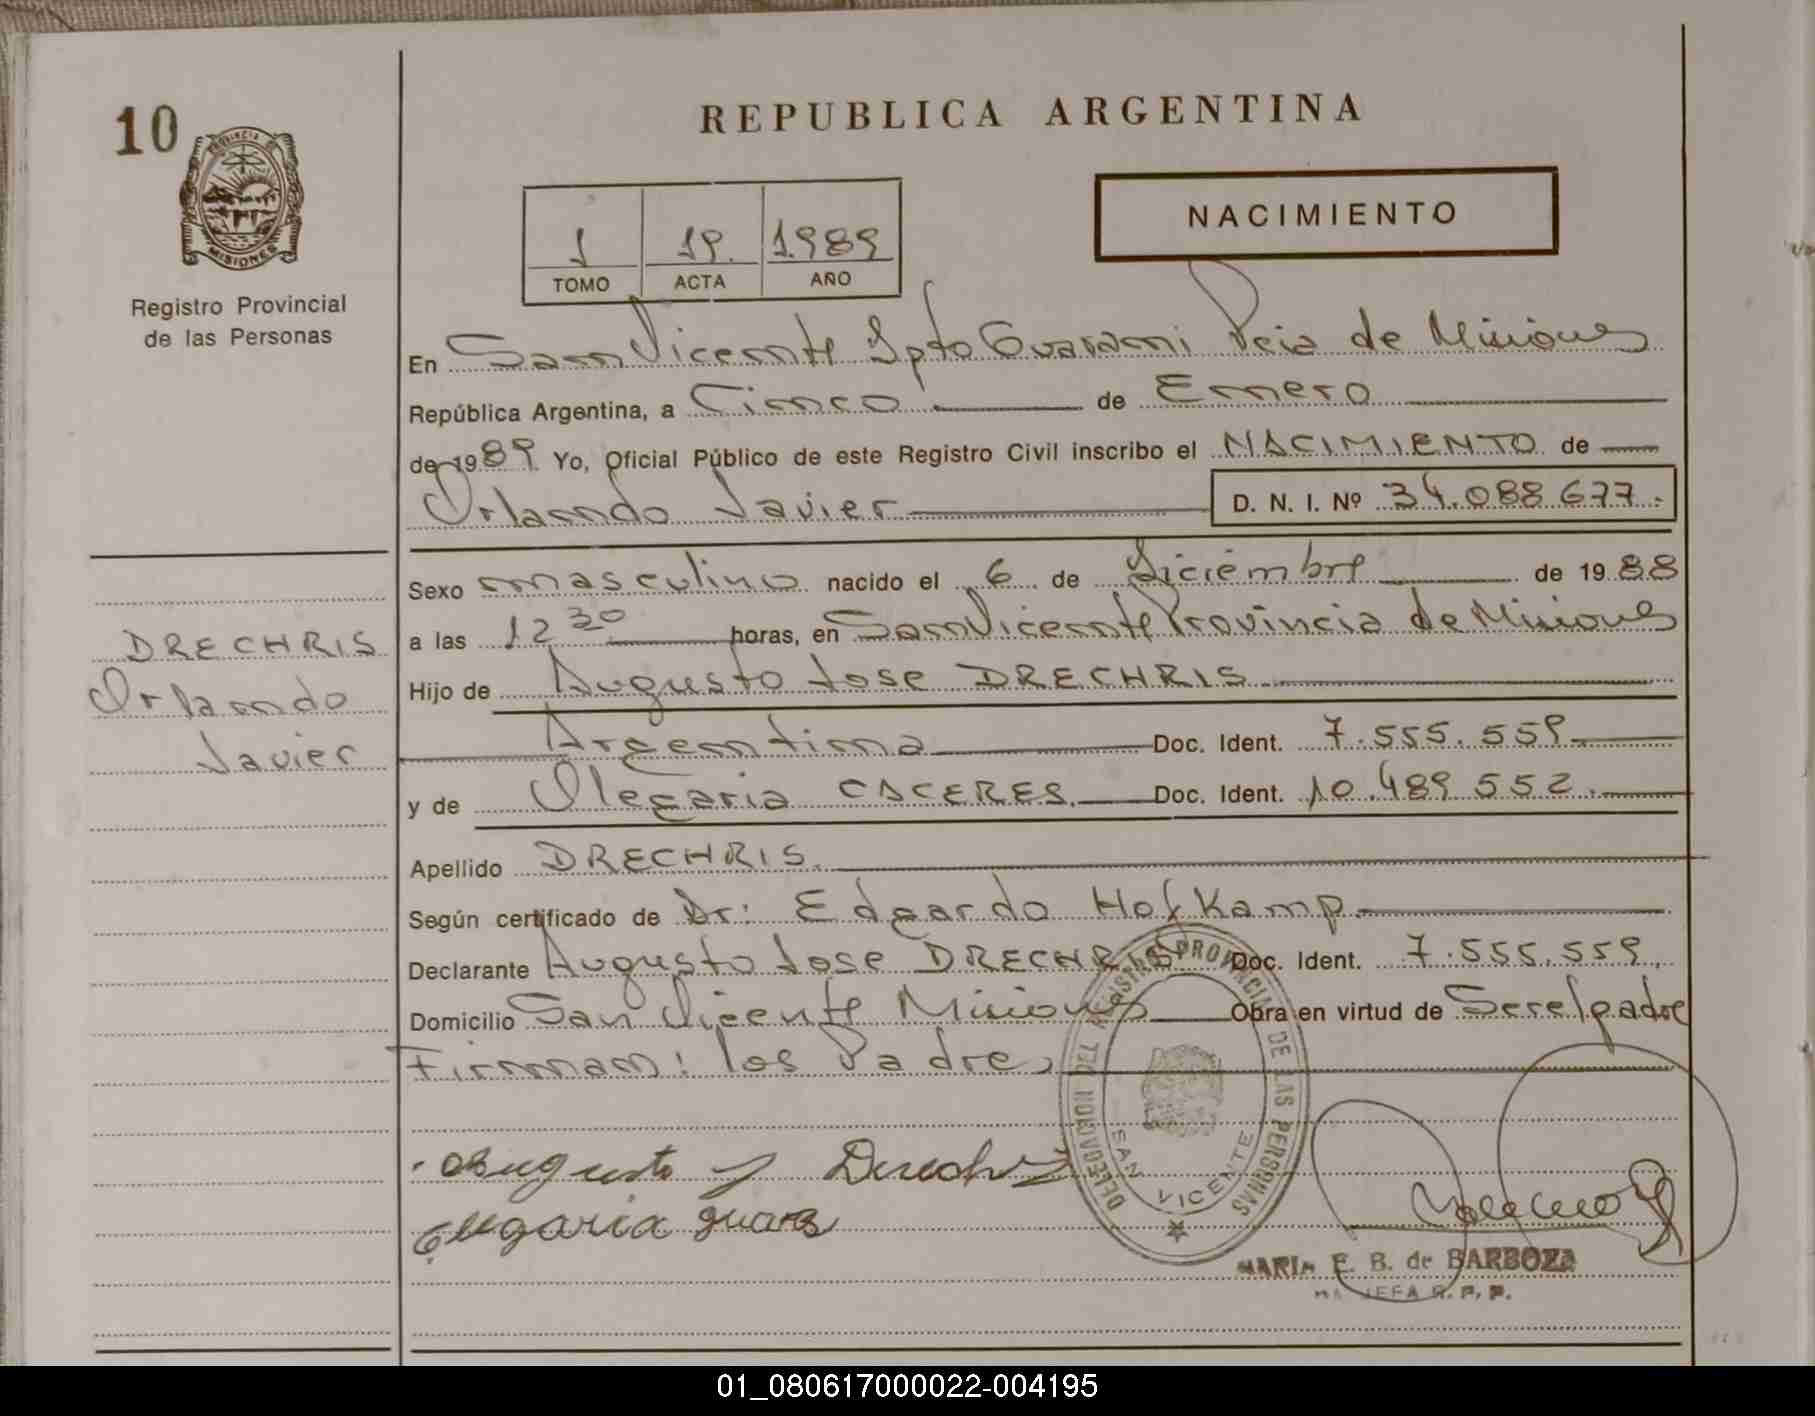 10
PROVINCIA DE
MISIONES
Registro Provincial
de las Personas
REPUBLICA ARGENTINA
1 19. 1989
TOMO ACTA AÑO
NACIMIENTO
En San Vicente Dpto Guarani Pcia de Misiones
República Argentina, a Cinco de Enero
de 1989 Yo, Oficial Público de este Registro Civil inscribo el NACIMIENTO de
Orlando Javier D. N. I. Nº 34.088.677.
Sexo masculino nacido el 6 de Diciembre de 1988
a las 12 30 horas, en San Vicente Provincia de Misiones
Hijo de Augusto Jose DRECHRIS
Argentina Doc. Ident. 7.555.559.
y de Olegaria CACERES. Doc. Ident. 10.489.552.
Apellido DRECHRIS.
Según certificado de Dr: Edgardo Hofkamp.
Declarante Augusto Jose DRECHRIS Doc. Ident. 7.555.559.
Domicilio San Vicente Misiones Obra en virtud de Ser el padre
Firman: los Padres
DRECHRIS
Orlando
Javier
Augusto J
DELEGACION DEL REGISTRO PROVINCIAL DE LAS PERSONAS
SAN VICENTE
MARIA E. B. de BARBOZA
JEFA R. P. P.
01_080617000022-004195